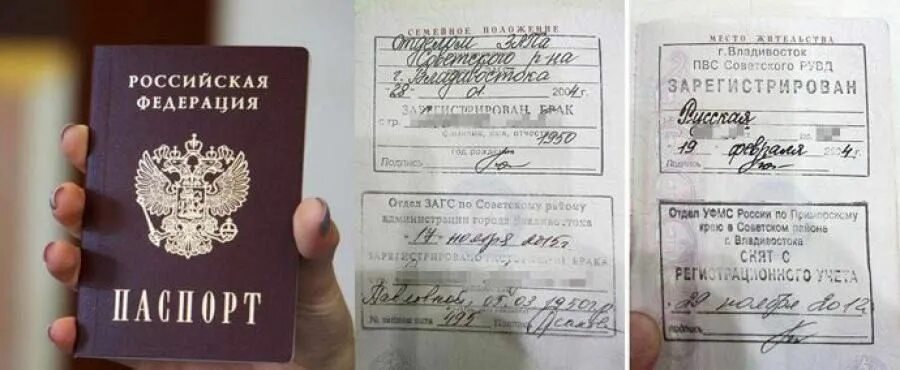 РОССИЙСКАЯ
ФЕДЕРАЦИЯ
ПАСПОРТ
СЕМЕЙНОЕ ПОЛОЖЕНИЕ
Отделом ЗАГСа
Советского р-на
г. Владивостока
28 01 2004г.
ЗАРЕГИСТРИРОВАН БРАК
С гр.
фамилия, имя, отчество
1950
год рождения
Подпись
Отдел ЗАГС по Советскому району
администрации города Владивостока
17 ноября 2015г.
ЗАРЕГИСТРИРОВАНО РАСТОРЖЕНИЕ БРАКА
Павловной, 05.03.1950г.
№ записи акта 495 Подпись
МЕСТО ЖИТЕЛЬСТВА
г.Владивосток
ПВС Советского РУВД
ЗАРЕГИСТРИРОВАН
Русская
19 февраля 2004г.
Подпись
Отдел УФМС России по Приморскому
краю в Советском районе
г. Владивостока
СНЯТ С
РЕГИСТРАЦИОННОГО УЧЕТА
29 ноября 2012
подпись